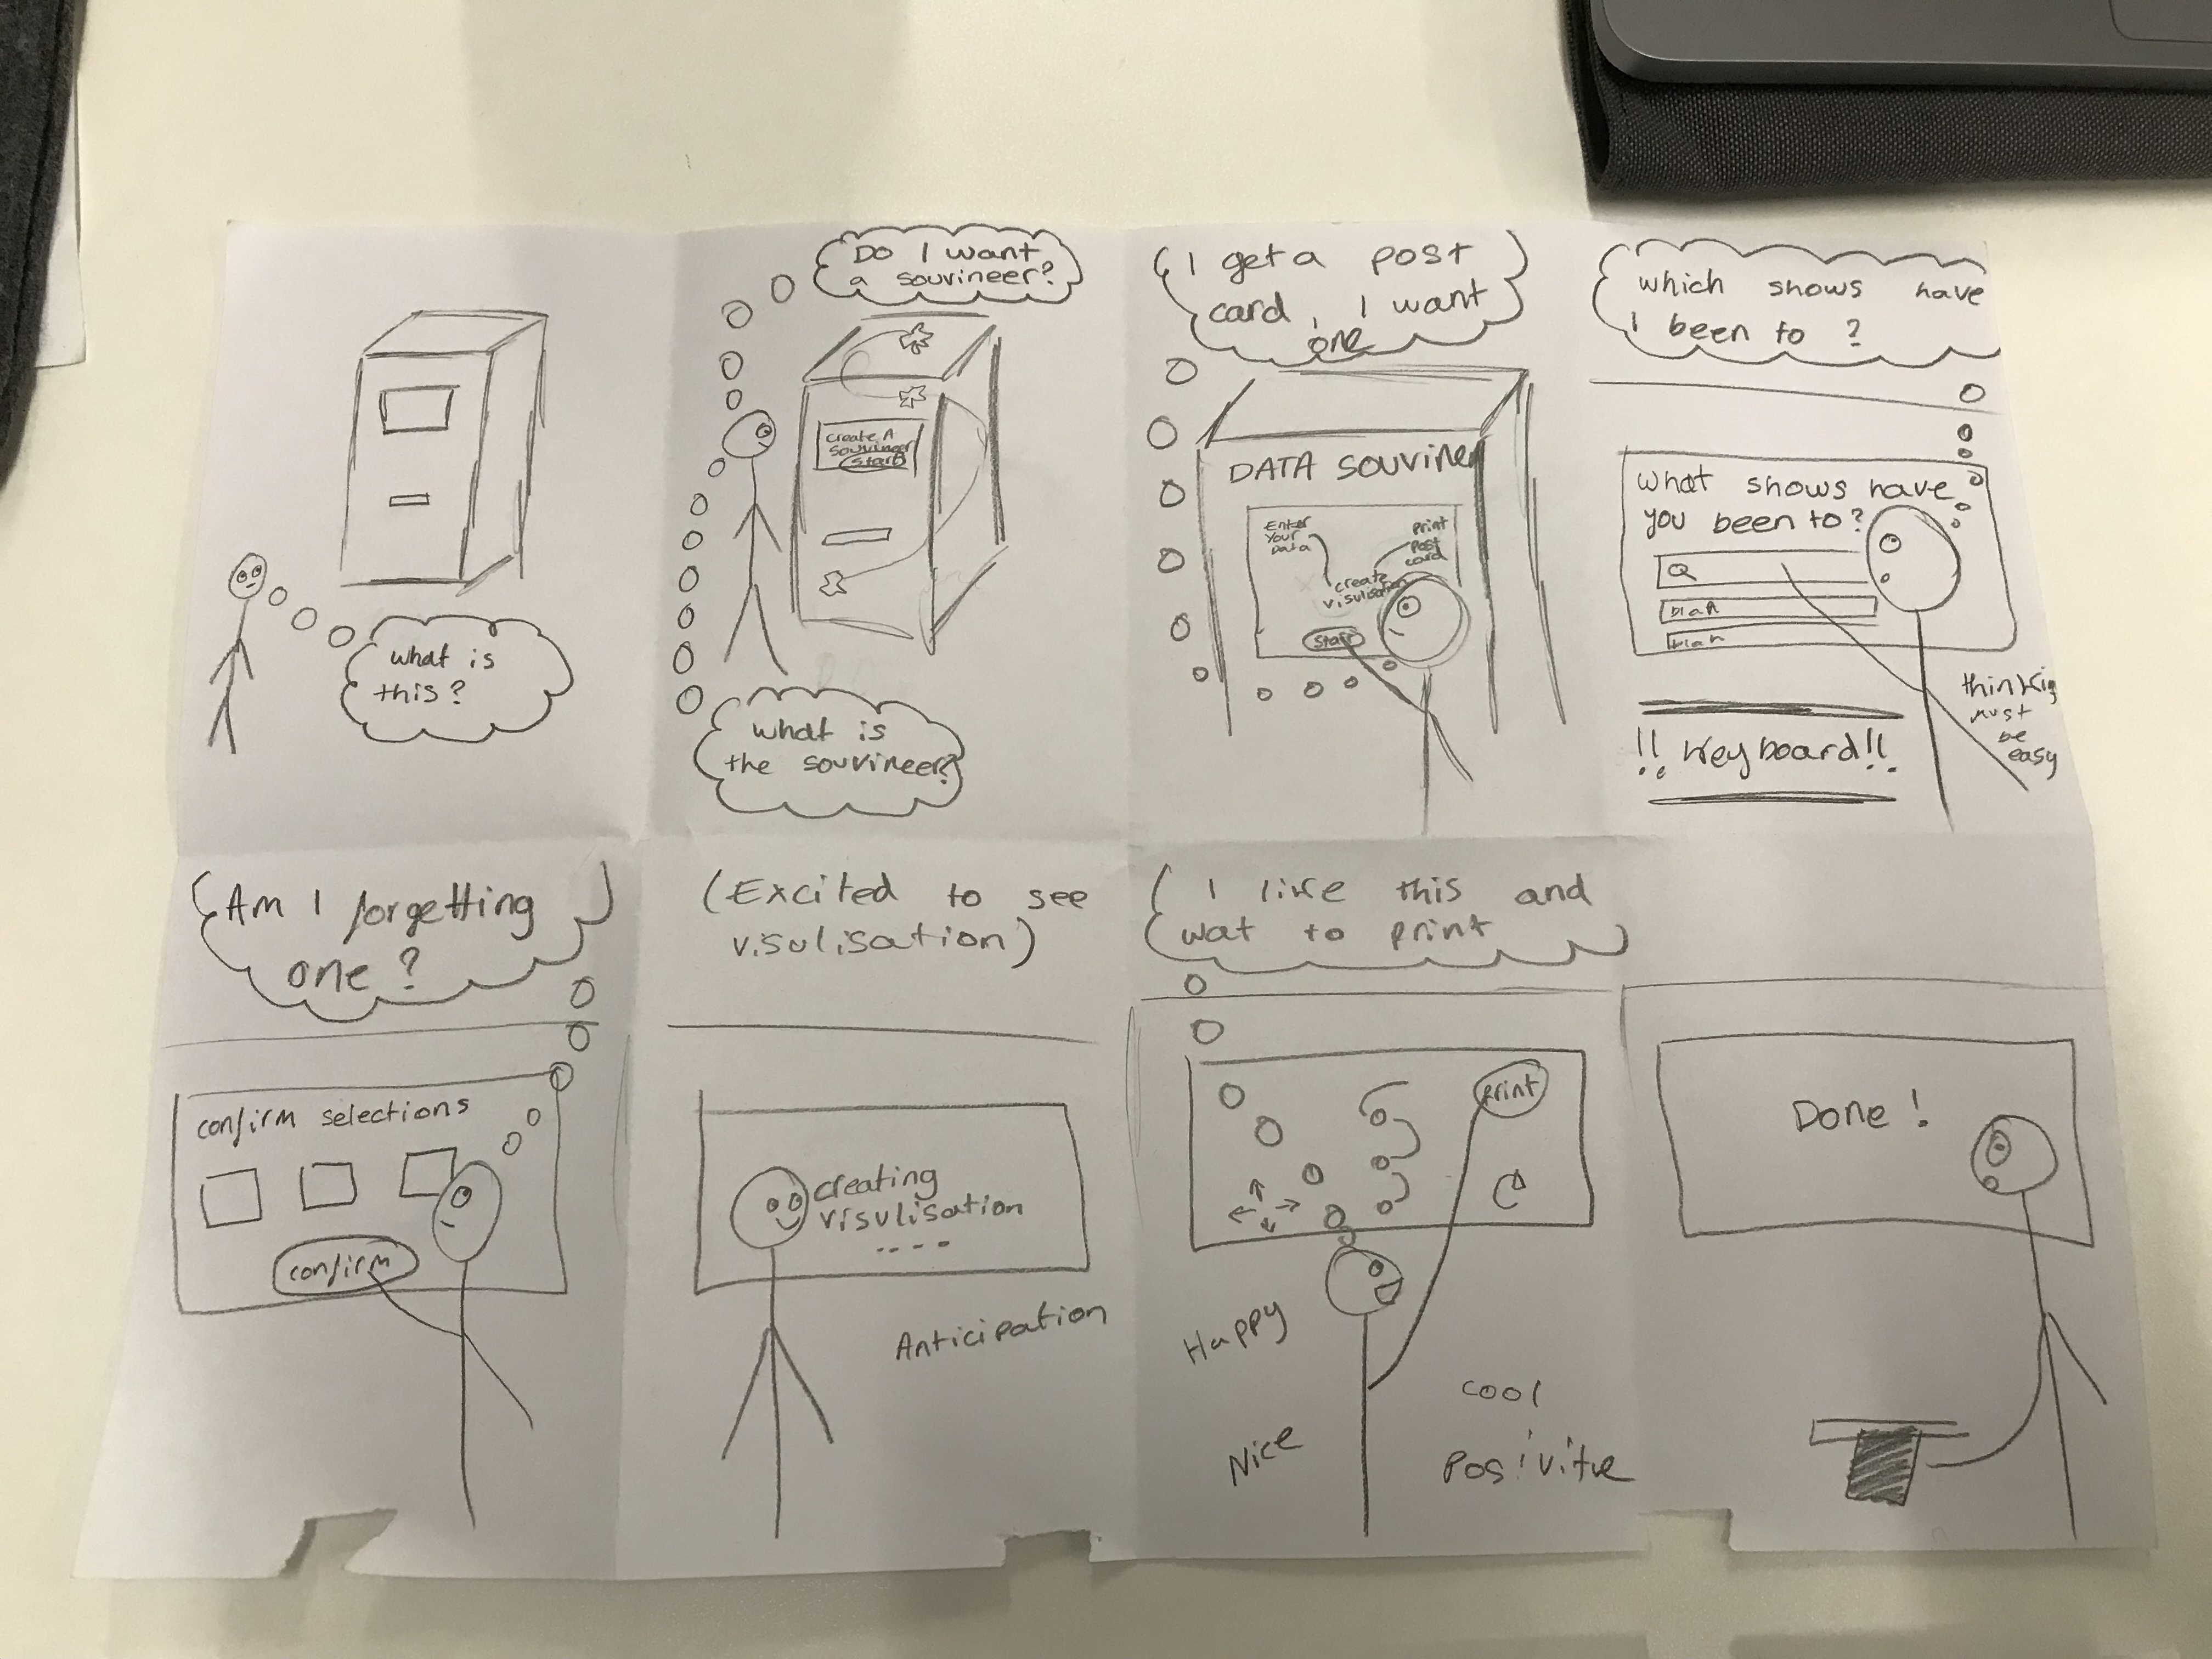 what is
this?
Do I want
a souvineer?
create A
souvineer
start
what is
the souvineer?
I get a post
card, I want
one
DATA SOUVINER
Enter
Your
Data
print
post
card
create
visulisation
start
which shows have
I been to ?
what shows have
you been to?
Q
blah
blah
!! Keyboard!!
thinking
must
be
easy
Am I forgetting
one ?
confirm selections
confirm
(Excited to see
visulisation)
creating
visulisation
....
Anticipation
I like this and
wat to print
print
Happy
Nice
cool
Posivitve
Done !